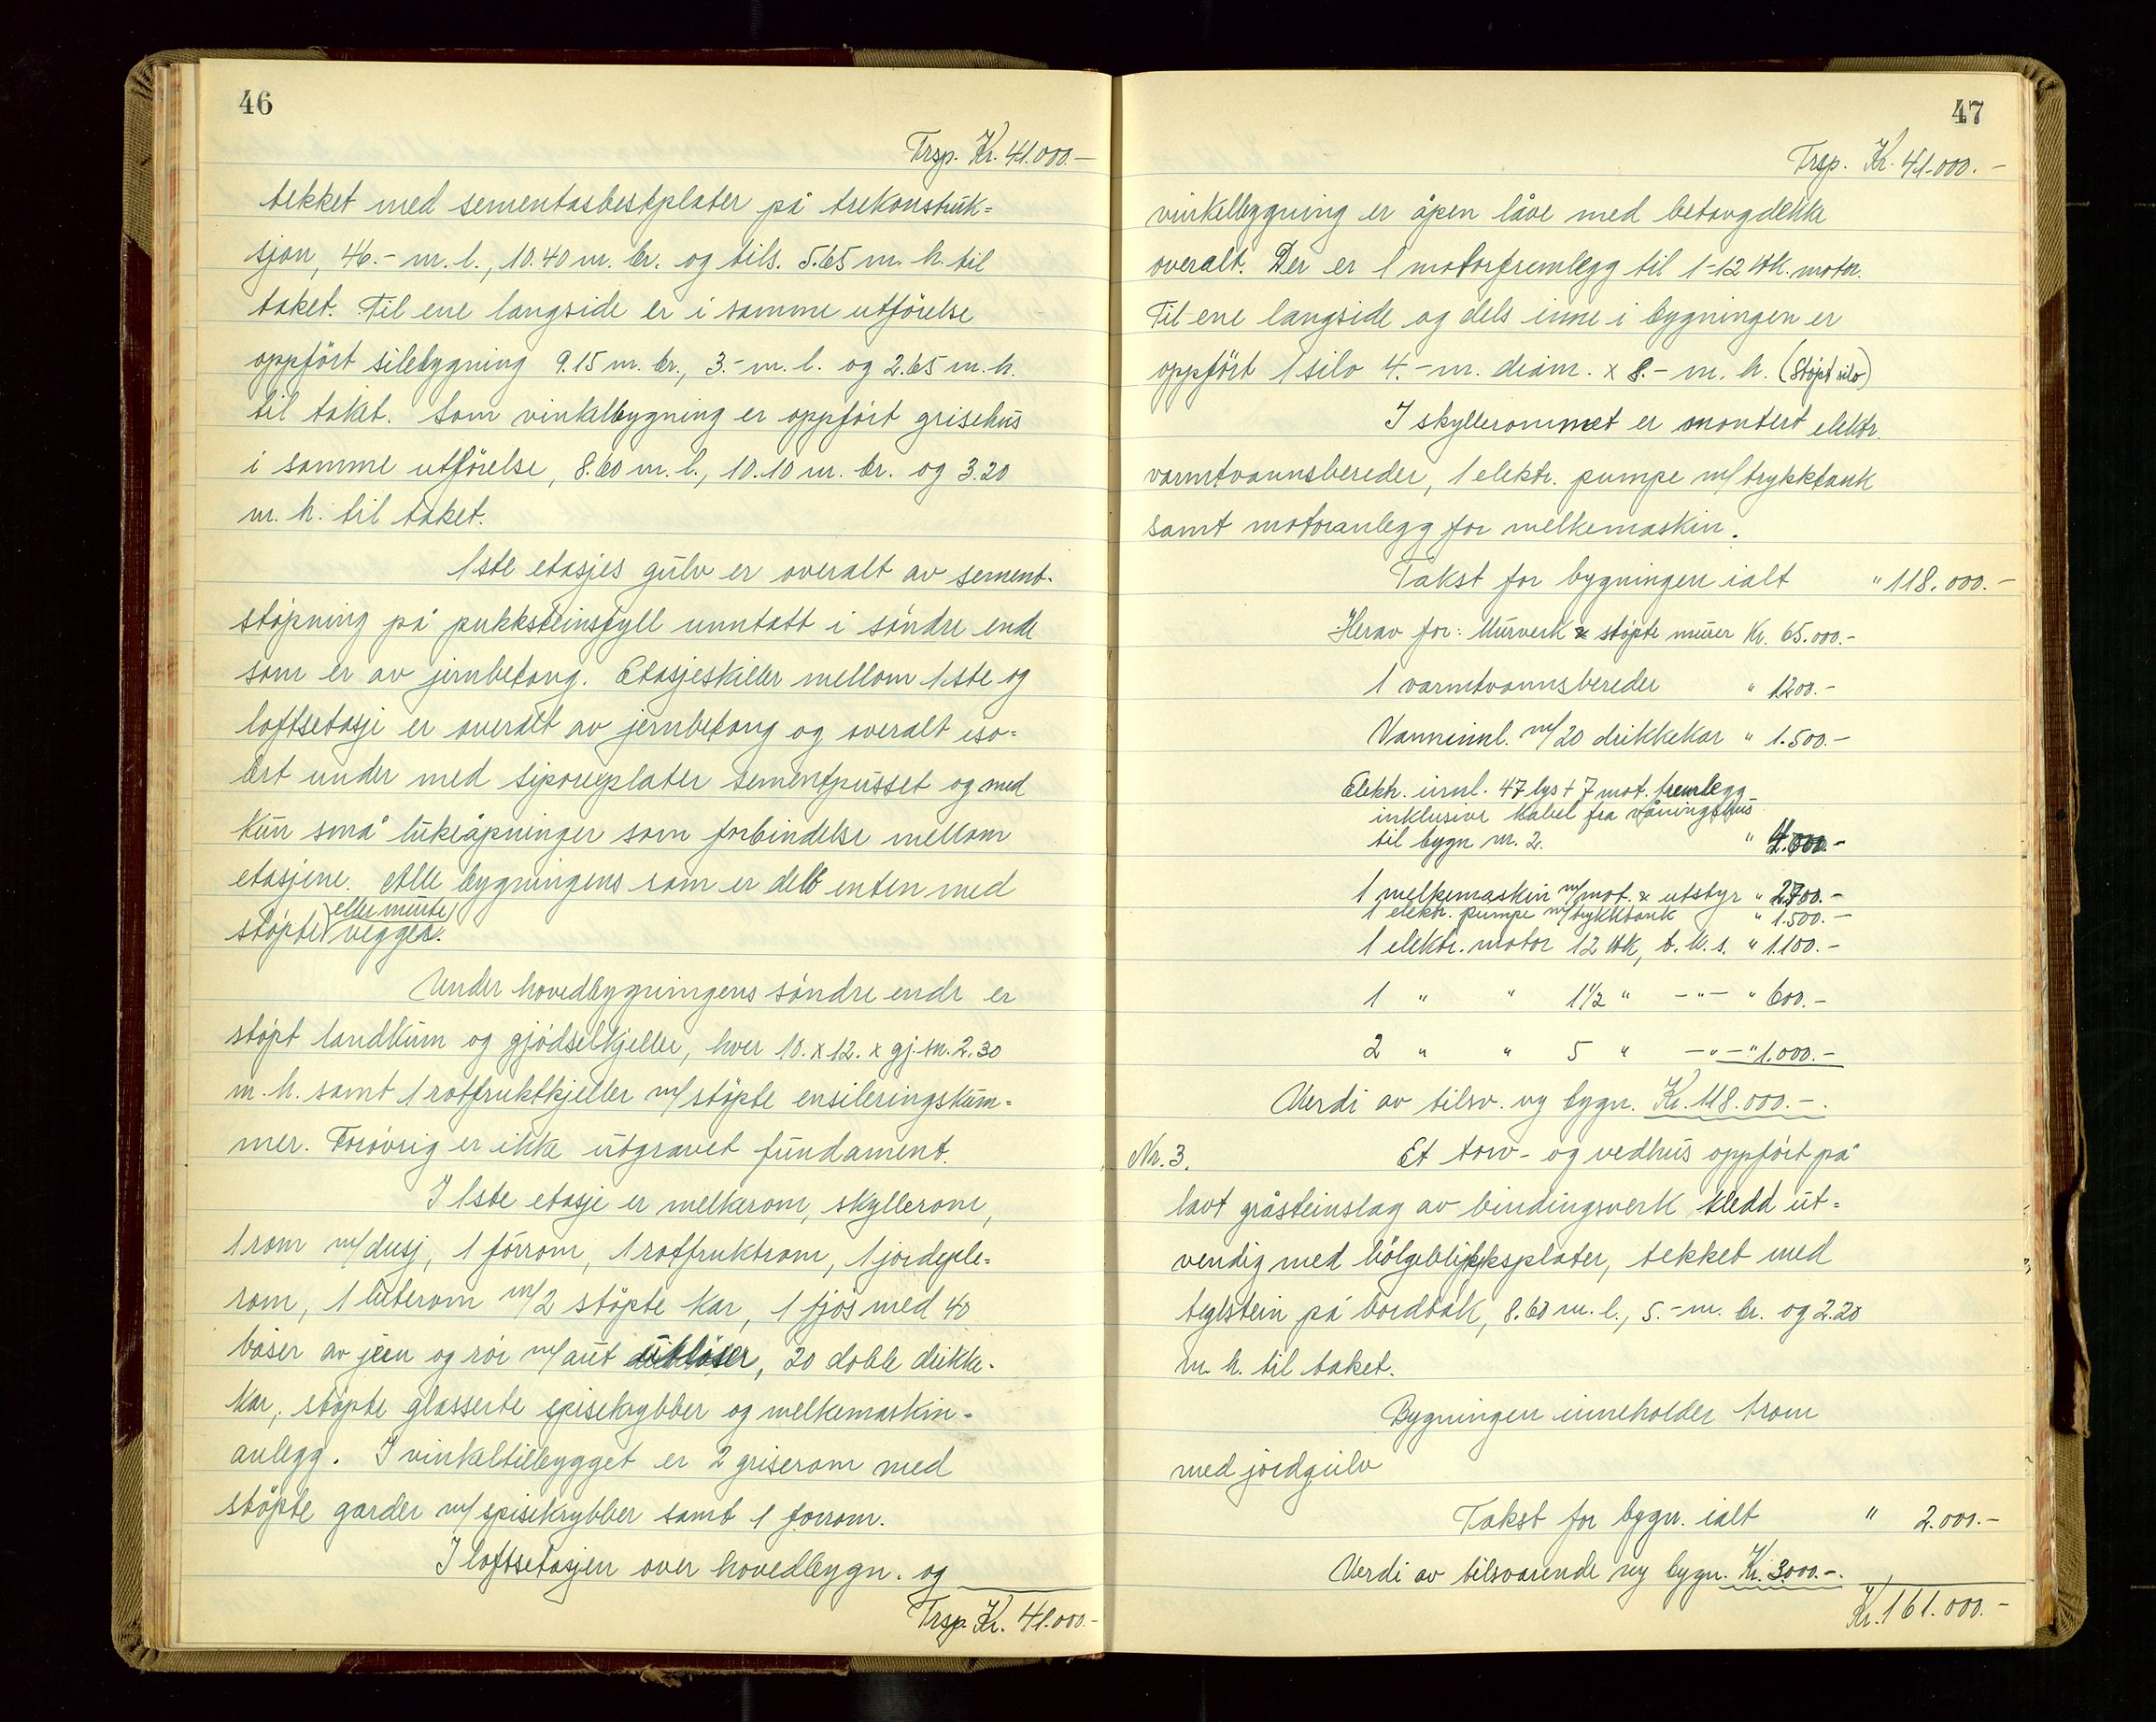 46
Trsp. Kr. 41.000.—
tekket med sementasbestplater på trekonstruk=
sjon, 46.- m. l., 10.40 m. br. og tils. 5.65 m. h. til
taket. Til ene langside er i samme utførelse
oppført silebygning 9.15 m. br., 3.- m. l. og 2.65 m. h.
til taket. Som vinkelbygning er oppført grisehus
i samme utførelse, 8.60 m. l., 10.10 m. br. og 3.20
m. h. til taket.
1ste etasjes gulv er overalt av sement-
støpning på pukksteinsfyll unntatt i søndre ende
som er av jernbetong. Etasjeskiller mellom 1ste og
loftsetasje er overalt av jernbetong og overalt iso=
lert under med siporexplater sementpusset og med
kun små lukeåpninger som forbindelse mellom
etasjene. Alle bygningens rom er delt enten med
støpte (eller murte) vegger.
Under hovedbygningens søndre ende er
støpt landkum og gjødselkjeller, hver 10. x 12. x gj.sn. 2.30
m. h. samt 1 rotfruktkjeller m/støpte ensileringskum=
mer. Forøvrig er ikke utgravet fundament.
I 1ste etasje er melkerom, skyllerom,
1 rom m/dusj, 1 fôrrom, 1 rotfruktrom, 1 jordeple=
rom, 1 luterom m/2 støpte kar, 1 fjøs med 40
båser av jern og rør m/aut utløser, 20 doble drikke-
kar, støpte glasserte spisekrybber og melkemaskin-
anlegg. I vinkeltilbygget er 2 griserom med
støpte garder m/spisekrybber samt 1 forrom.
I loftsetasjen over hovedbygn. og
Trsp. Kr. 41.000.-
47
Trsp. Kr. 41.000.-
vinkelbygning er åpen låve med betongdekke
overalt. Der er 1 motorfremlegg til 1-12 Hk. motor.
Til ene langside og dels inne i bygningen er
oppført 1 silo 4.- m. diam. x 8.- m. h. (Støpt silo)
I skyllerommet er montert elektr.
varmtvannsbereder, 1 elektr. pumpe m/trykktank
samt motoranlegg for melkemaskin.
Takst for bygningen ialt " 118.000.-
Herav for: Murverk & støpte murer Kr. 65.000.-
1 varmtvannsbereder " 1200.-
Vanninnl. m/20 drikkekar " 1.500.-
Elektr. innl. 47 lys + 7 mot. fremlegg
inklusive kabel fra våningshus
til bygn nr. 2. " 4.000.-
1 melkemaskin m/mot. & utstyr " 2700.-
1 elektr. pumpe m/trykktank " 1.500.-
1 elektr. motor 12 Hk, t. k. s. " 1.100.-
1 " " 1½ " -"- " 600.-
2 " " 5 " -"- " 1.000.-
Verdi av tilsv. ny bygn. Kr. 118.000.-.
Nr. 3. Et torv- og vedhus oppført på
lavt gråsteinslag av bindingsverk kledd ut=
vendig med bølgeblikksplater, tekket med
teglstein på bordtak, 8.60 m. l., 5.- m. br. og 2.20
m. h. til taket.
Bygningen inneholder 1 rom
med jordgulv
Takst for bygn. ialt " 2.000.-
Verdi av tilsvarende ny bygn. Kr. 3000.-.
Kr. 161.000.-